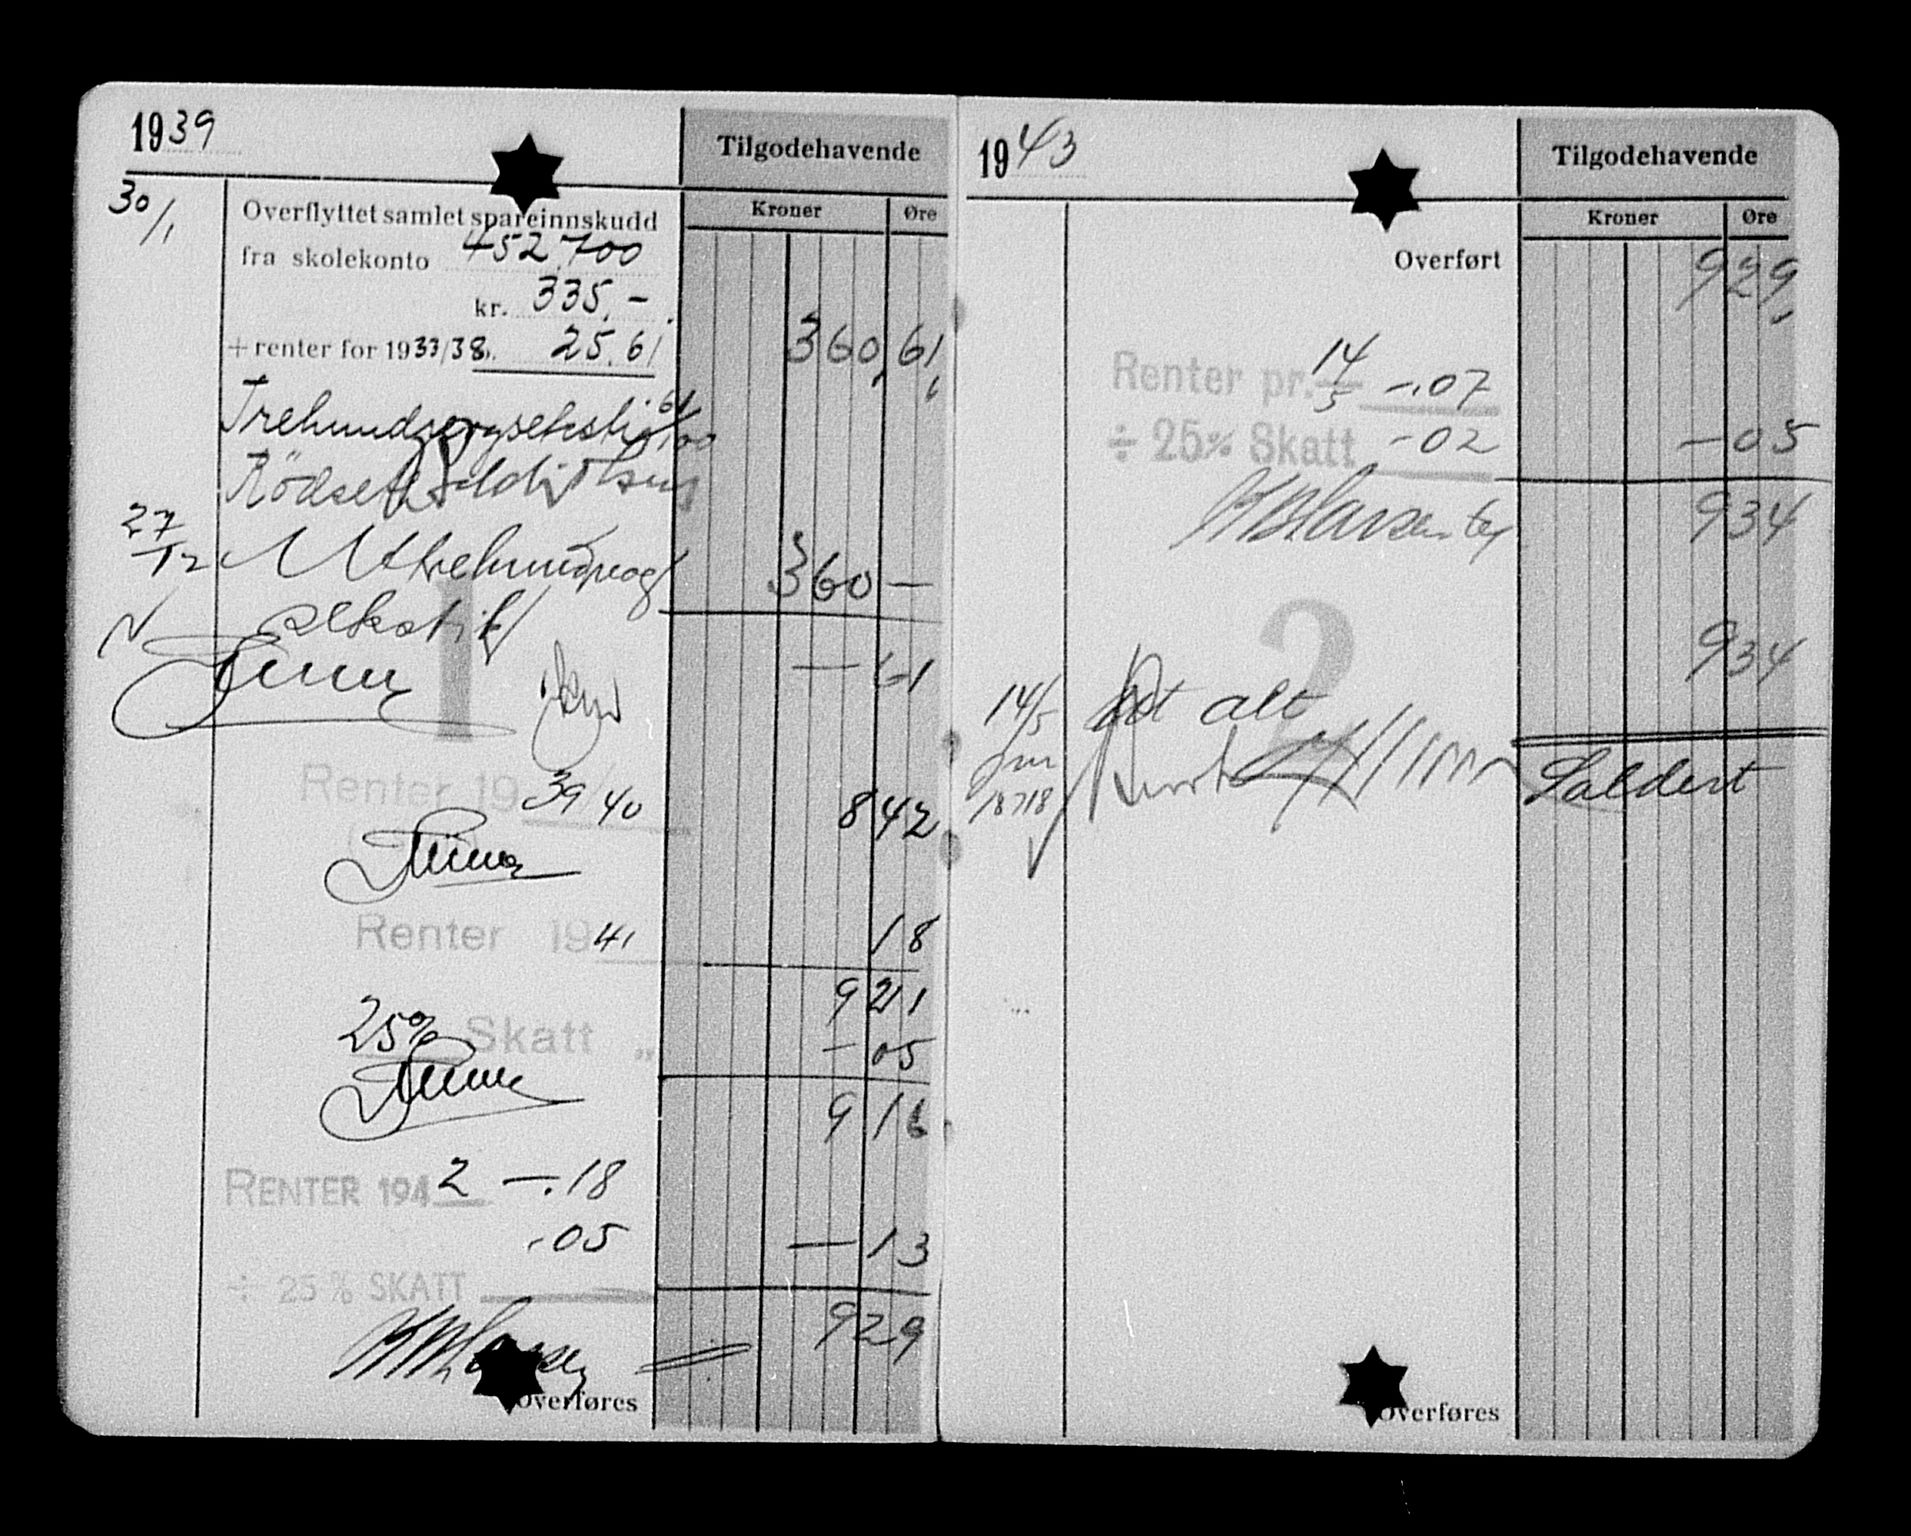 1939
Tilgodehavende
Kroner Øre
30/1 Overflyttet samlet spareinnskudd
fra skolekonto 452.700
kr. 335.-
+ renter for 1933/38 " 25.61 360,61
Trehundreogseksti 61/100
27/12 Ut trehundreog 360 —
seksti
— 61
Renter 1939/40 8 42
Renter 1941 18
9 21
25% Skatt „ — 05
9 16
RENTER 1942 —.18
.05 — 13
÷ 25% SKATT
9 29
Overføres
1
1943
Tilgodehavende
Kroner Øre
Overført 9 29
Renter pr. 14/5 —.07
÷ 25% Skatt -02 — 05
9 34
2
9 34
14/5 alt
18718
Saldert
Overføres